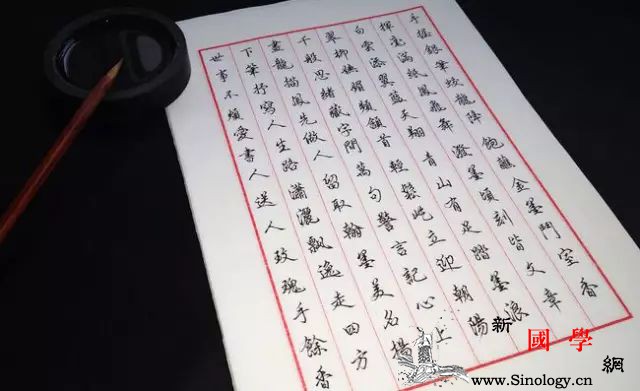 手握銀筆蛟龍降 飽蘸金墨鬥室香
揮毫滿紙鳳飛舞 潑墨頃刻皆文章
白雲添翼藍天翔 青山有足踏墨浪
翠柳 頻頷首 輕鬆 立迎朝陽
千般思緒藏字間 萬句警言記心上
畫龍描鳳先做人 留取翰墨美名揚
下筆抒寫人生路 瀟灑飄逸走四方
世事不煩愛書人 送人玫瑰手餘香
新國學網
www.Sinology.cn